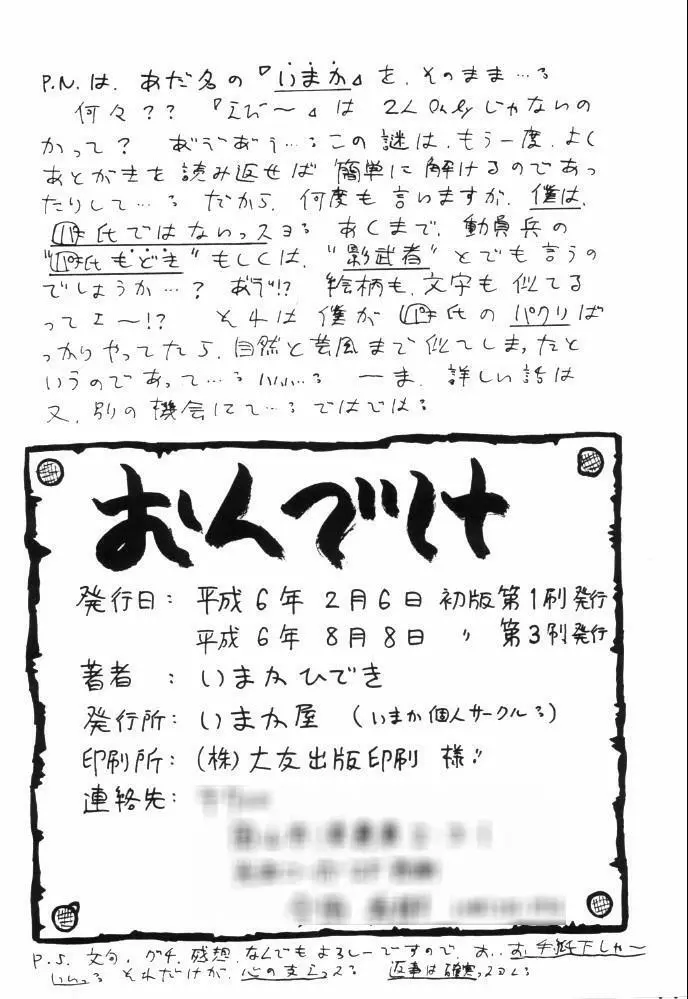 P.N.は、あだ名の『いまか』を、そのまま…。
何々??『えび〜』は2人Onlyじゃないの
かって? あ゛う゛あ゛う…。この謎は、もう一度、よく
あとがきを読み返せば簡単に解けるのであっ
たりして…。だから、何度も言いますが、僕は、
氏ではないっスヨ。あくまで、動員兵の
氏もどき"もしくは、"影武者"とでも言うの
でしょうか…? あ゛う゛!? 絵柄も、文字も似てる
ってェ〜!? それは僕が 氏のパクリば
っかりやってたら、自然と芸風まで似てしまったと
いうのであって…。いいい…。ーま、詳しい話は
又、別の機会にて…。ではでは。
おんでけ
発行日: 平成6年 2月6日 初版第1刷発行
平成6年 8月8日 〃 第3刷発行
著者 : いまかひでき
発行所: いまか屋 (いまか個人サークル。)
印刷所: (株)大友出版印刷 様!!
連絡先:
P.S. 文句、グチ、感想、なんでもよろしーですので、お…お手紙下しゃ〜
いいっ。それだけが、心の支えっス。 返事は確実っスヨ。